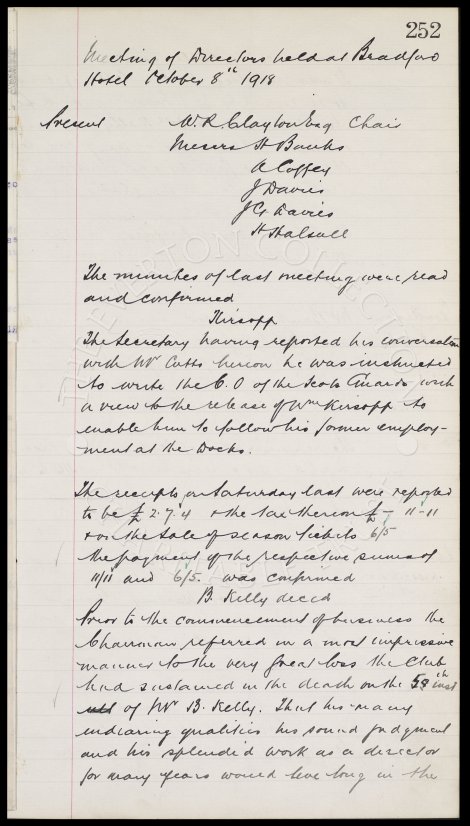 252
Meeting of Directors held at Bradford
Hotel October 8th 1918
Present W. R. Clayton Esq Chair
Messrs H Banks
A Coffey
J Davies
J G Davies
H Halsall
The minutes of last meeting were read
and confirmed
Kirsopp
The Secretary having reported his conversation
with Mr Cutts hereon he was instructed
to write the C.O of the Scots Guards with
a view to the release of Wm Kirsopp to
enable him to follow his former employ-
ment at the Docks.
The receipts on Saturday last were reported
to be £ 2.7.4 & the tax thereon £ - 11-11
& on the sale of season tickets 6/5
the payment of the respective sums of
11/11 and 6/5. was confirmed
B. Kelly decd
Prior to the commencement of business the
Chairman referred in a most impressive
manner to the very great loss the Club
had sustained in the death on the inst
of Mr B. Kelly. That his many
indearing qualities his sound judgment
and his splendid work as a director
for many years would live long in the
THE EVERTON COLLECTION